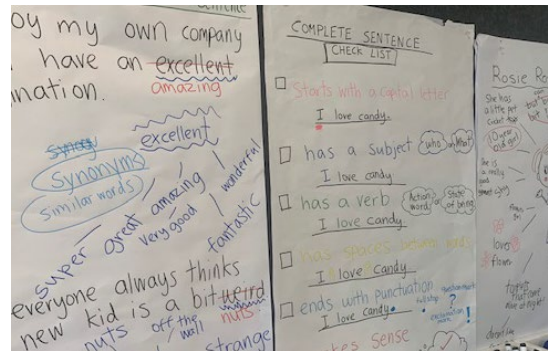 oy my own company
have an excellent
amazing
nation.
excellent
Synonyms
Similar words
super
great
amazing
very good
wonderful
fantastic
everyone always thinks
new kid is a bit weird
nuts
nuts
off the
wall
strange
COMPLETE SENTENCE
CHECK LIST
Starts with a capital letter
I love candy.
has a subject
who or what
I love candy
has a verb
Action
word
or
State
of being
I love candy
has spaces between words
I love candy
ends with punctuation
full stop
?
exclamation
mark
!
I love candy.
kes sense
Rosie Ro
She has
a little pet
10 year
old girl
She is
a really
loves